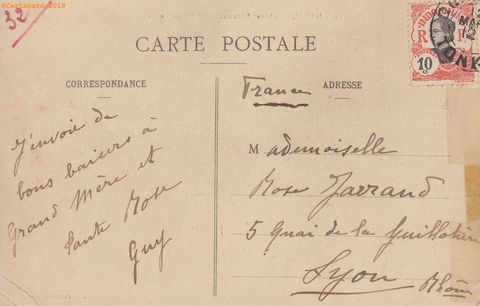 ©Cartacaro 2018
32
CARTE POSTALE
CORRESPONDANCE
France
ADRESSE
J'envoie de
bons baisers à
Grand Mère et
tante Rose
Guy
Mademoiselle
Rose Jarrand
5 Quai de la Guillotière
Lyon Rhône
10